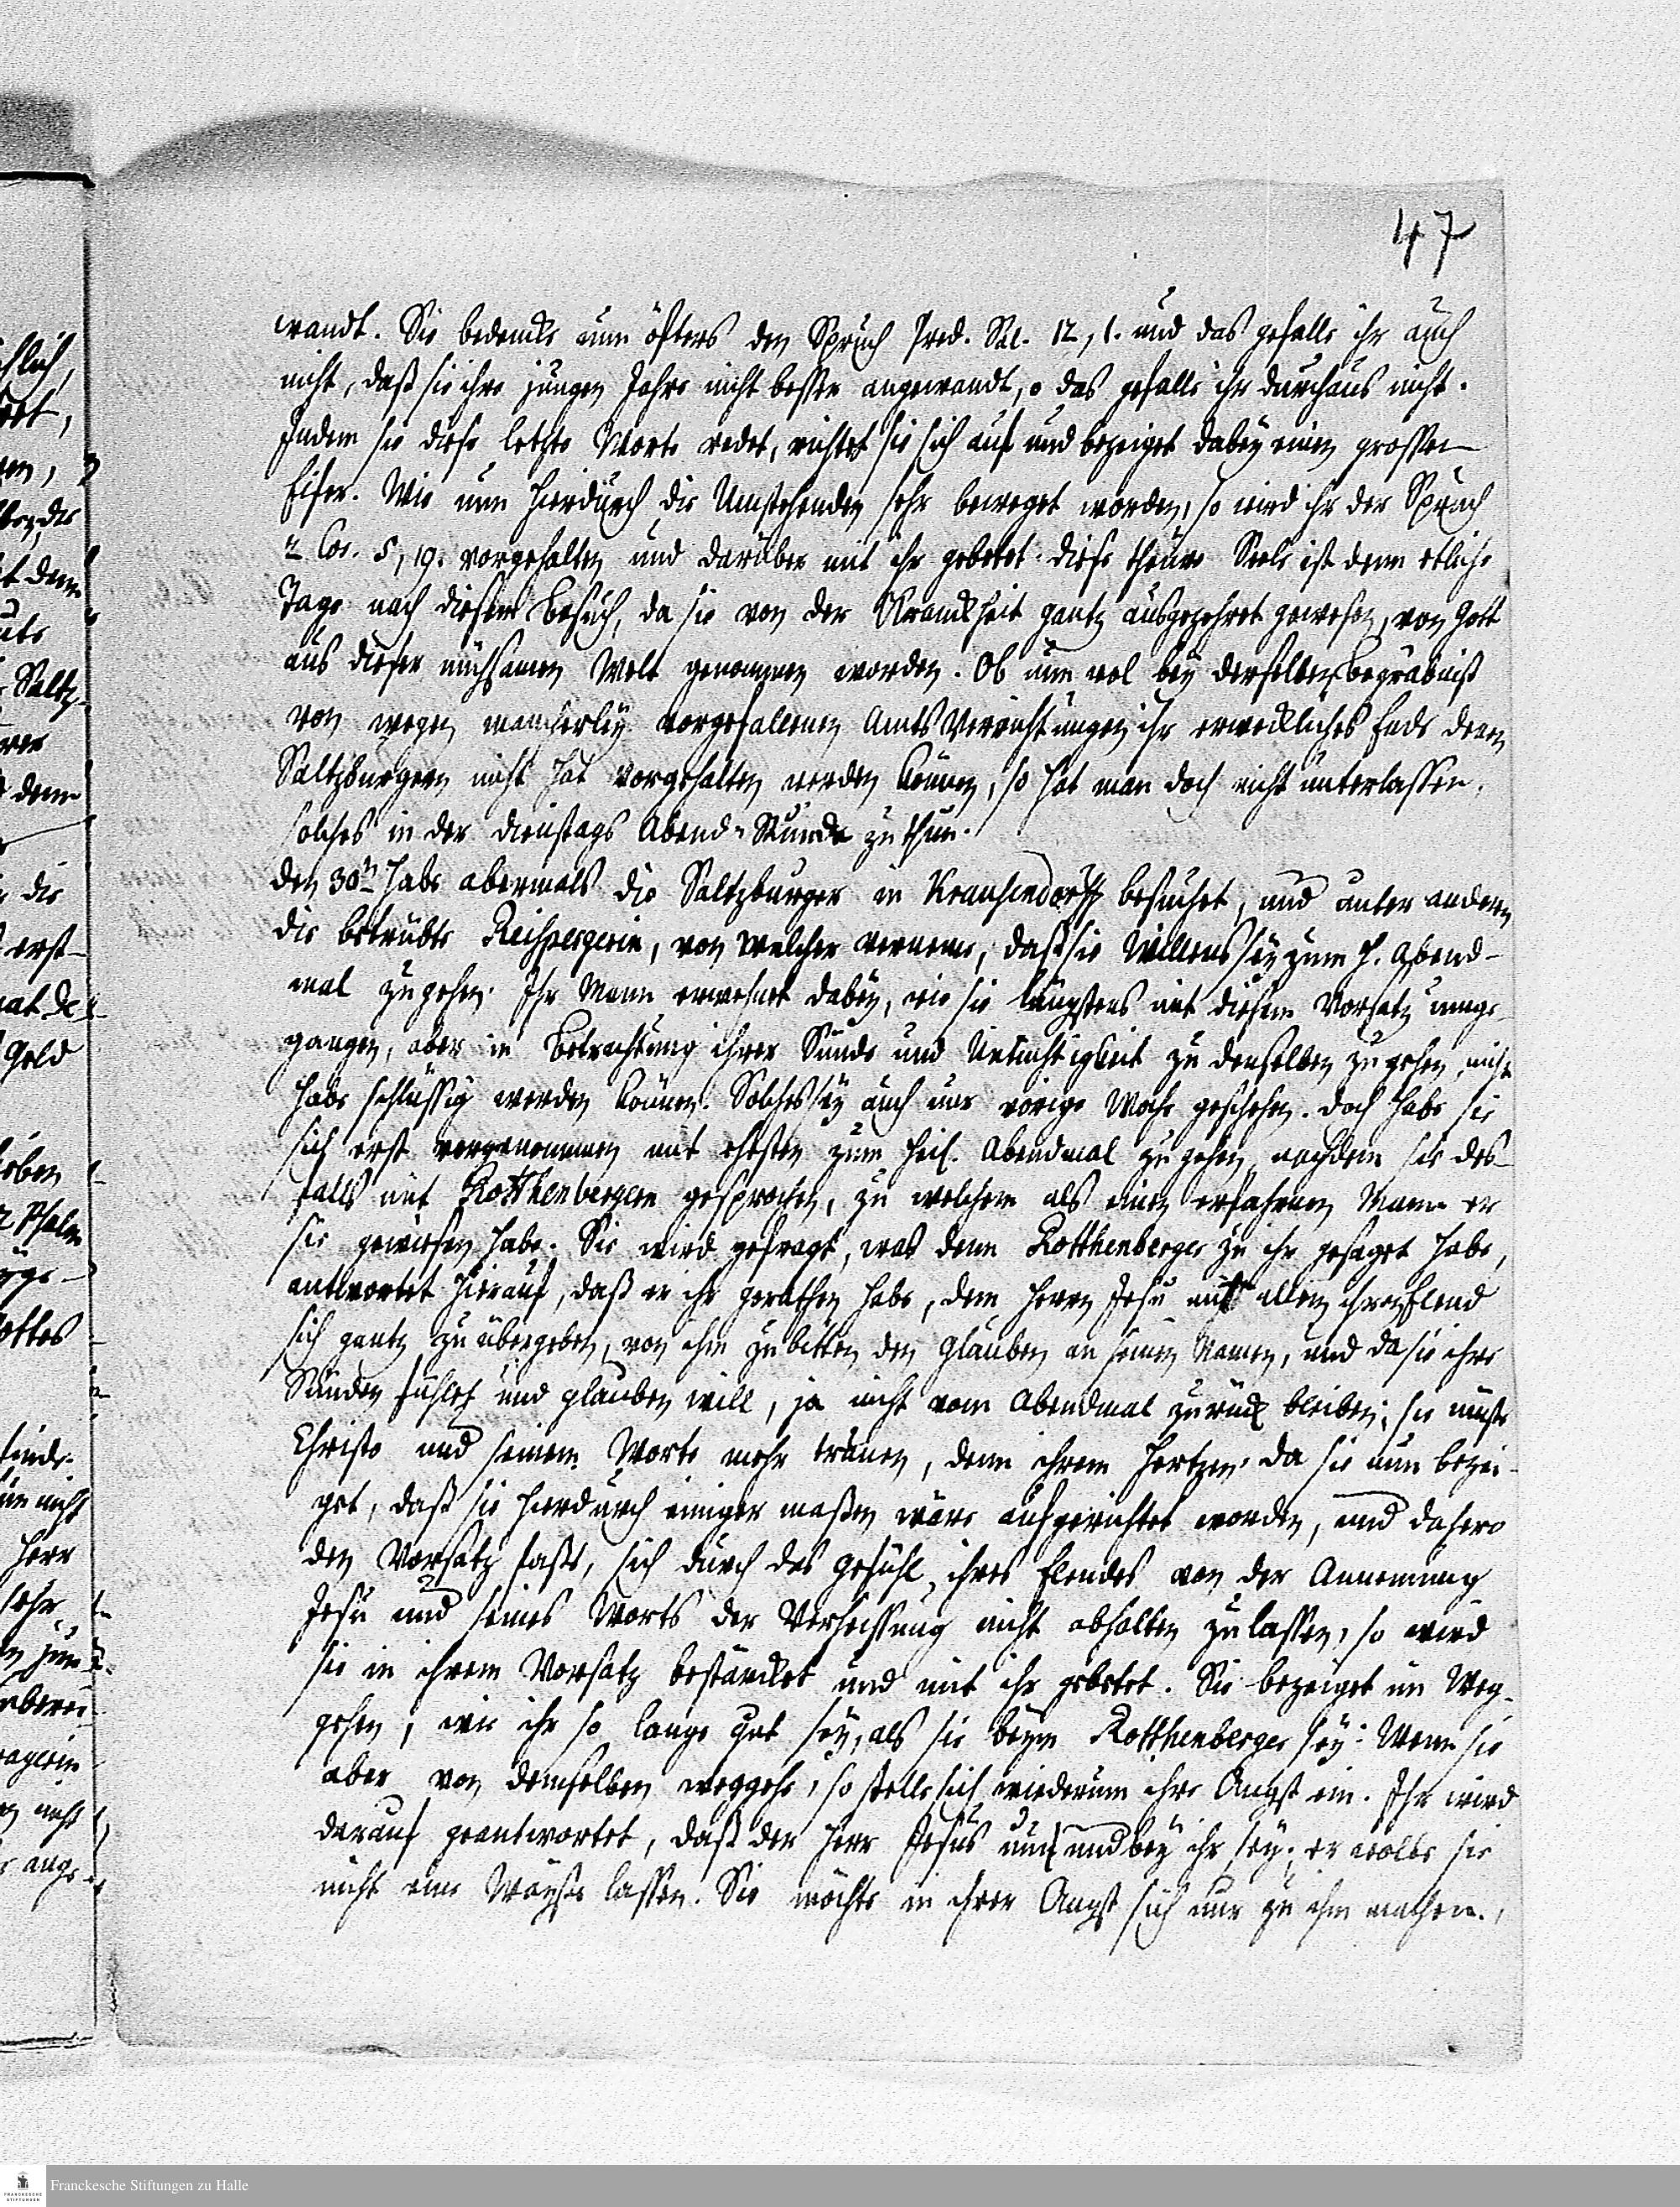 47
wandt. Sie bedencke nun öfters den Spruch Pred. Sal. 12, 1. und das gefalle ihr auch
nicht, daß sie ihre jungen Jahre nicht besser angewandt, o das gefalle ihr durchaus nicht.
Indem sie diese letzte Worte redet, richtet sie sich auf und bezeiget dabey einen grossen
Eifer. Wie nun hierdurch die Umstehenden sehr beweget worden, so wird ihr der Spruch
2 Cor. 5, 19. vorgehalten und darüber mit ihr gebetet. Diese theure Seele ist denn etliche
Tage nach diesem Besuch, da sie von der Kranckheit gantz ausgezehret gewesen, von Gott
aus dieser mühsamen Welt genommen worden. Ob nun wol bey derselben Begräbniß
von wegen mancherley vorgefallenen Amts Verrichtungen ihr erweckliches Ende denen
Saltzburgern nicht hat vorgehalten werden können, so hat man doch nicht unterlassen,
solches in der Dienstags Abend-Stunde zu thun.
Den 30ten habe abermals die Saltzburger in Kraußendorff besuchet, und unter andern
die betrübte Reichpergerin, von welcher verneme, daß sie Willens sey zum H. Abend-
mal zu gehen. Ihr Mann erwehnet dabey, wie sie längstens mit diesem Vorsatz umge-
gangen, aber in Betrachtung ihrer Sünde und Untüchtigkeit zu denselben zu gehen, nicht
habe schlüssig werden können. Solches sey auch nur vorige Woche geschehen. Doch habe sie
sich erst vorgenommen mit ehesten zum heil. Abendmal zu gehen, nachdem sie des-
falls mit Rotthenbergern gesprochen, zu welchem als einen erfahrnen Mann er
sie gewiesen habe. Sie wird gefragt, was denn Rotthenberger zu ihr gesaget habe,
antwortet hierauf, daß er ihr gerathen habe, dem Herrn Jesu mit allem ihren Elend
sich gantz zu übergeben, von ihm zu bitten den Glauben an seinen Namen, und da sie ihre
Sünden fühlet und glauben will, ja nicht vom Abendmal zurück bleiben; sie müste
Christo und seinem Worte mehr trauen, denn ihrem Hertzen. Da sie nun bezei-
get, daß sie hierdurch einiger maßen wäre aufgerichtet worden, und dahero
den Vorsatz faßt, sich durch das Gefühl ihres Elendes von der Annemung
Jesu und seines Worts der Verheissung nicht abhalten zu lassen, so wird
sie in ihrem Vorsatz bestärcket und mit ihr gebetet. Sie bezeiget im Weg-
gehen, wie ihr so lange gut sey, als sie beym Rotthenberger sey. Wenn sie
aber von demselben weggehe, so stelle sich wiederum ihre Angst ein. Ihr wird
darauf geantwortet, daß der Herr Jesus um und bey ihr sey; er wolle sie
nicht eine Wäyse lassen. Sie möchte in ihrer Angst sich nur zu ihm
Franckesche Stiftungen zu Halle